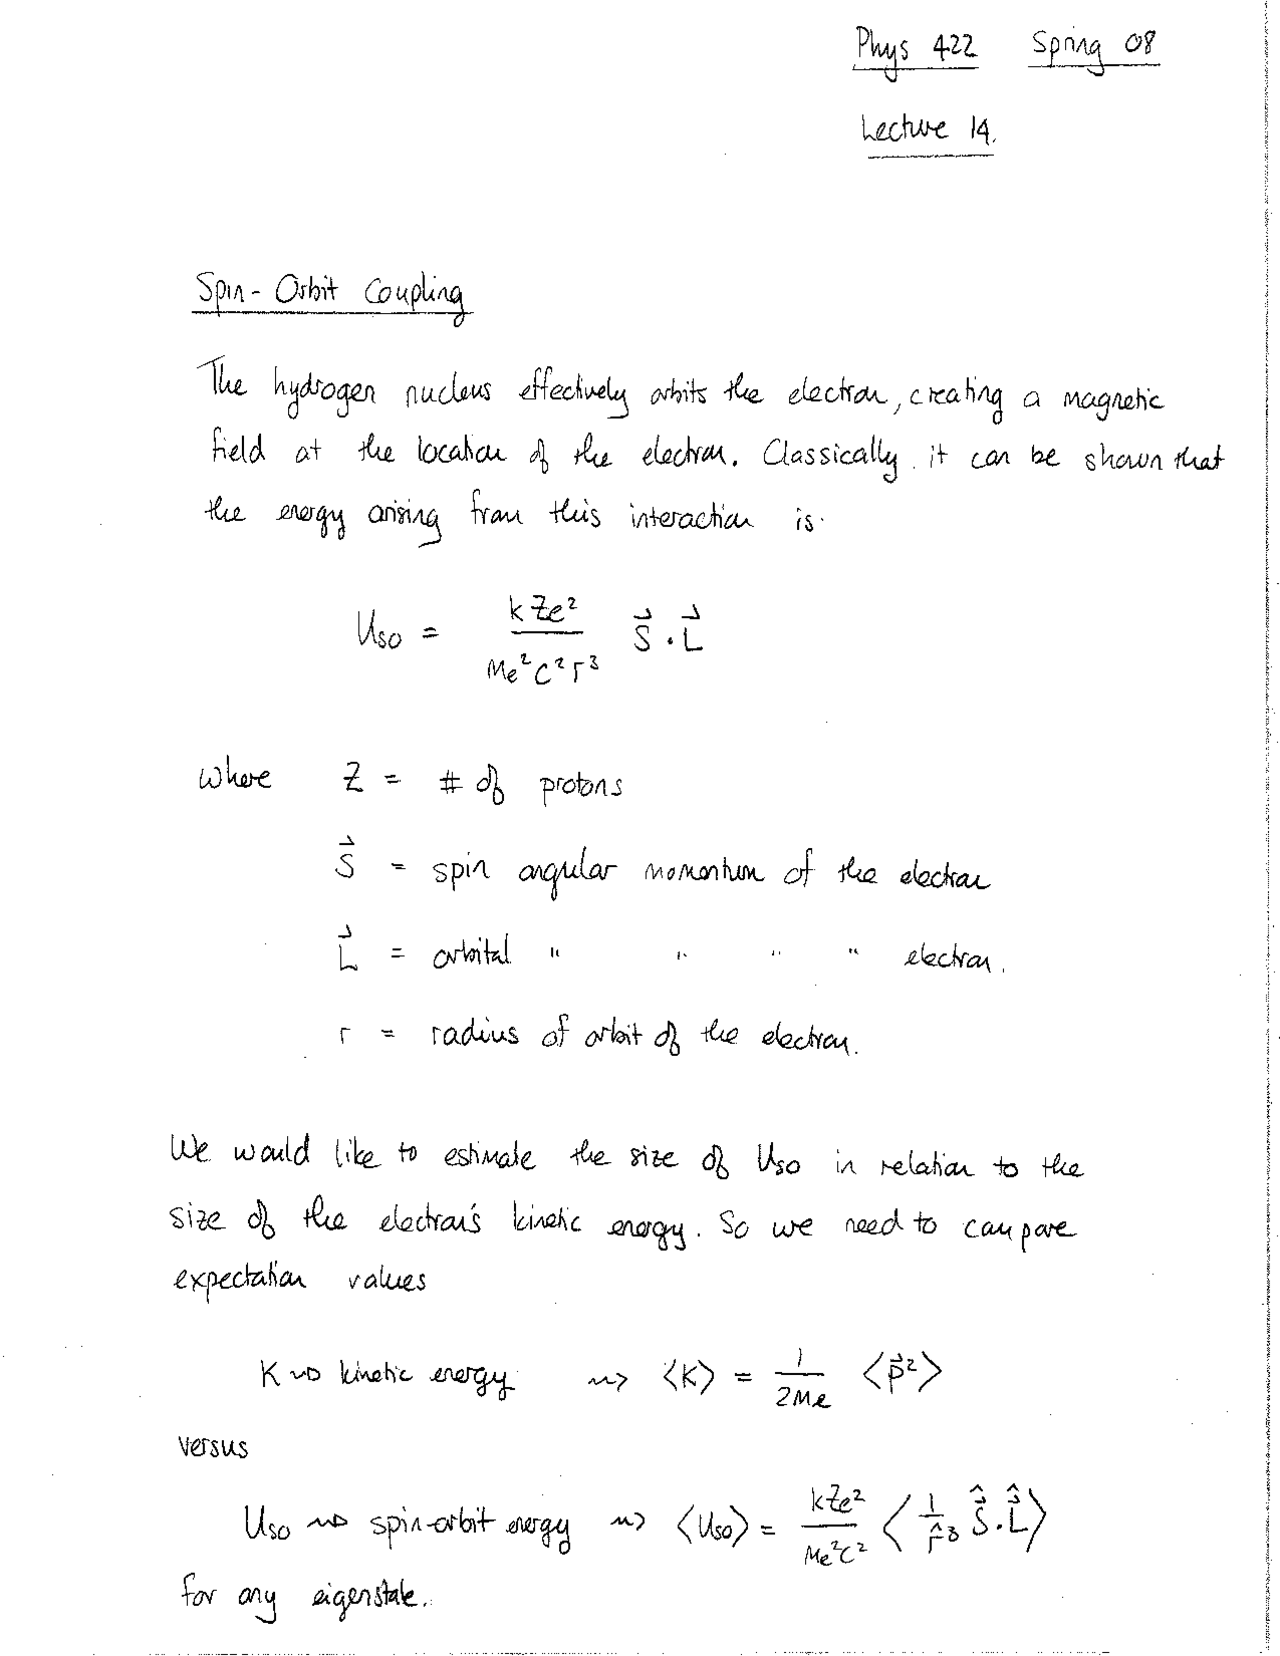 Phys 422 Spring 08
Lecture 14.
Spin-Orbit Coupling
The hydrogen nucleus effectively orbits the electron, creating a magnetic
field at the location of the electron. Classically it can be shown that
the energy arising from this interaction is.
Uso = kZe² / Me²C²r³ S⃗ · L⃗
where Z = # of protons
S⃗ = spin angular momentum of the electron
L⃗ = orbital " " " " electron.
r = radius of orbit of the electron.
We would like to estimate the size of Uso in relation to the
size of the electron's kinetic energy. So we need to compare
expectation values
K ⇝ kinetic energy ⇝ ⟨K⟩ = 1/2Me ⟨p⃗²⟩
versus
Uso ⇝ spin-orbit energy ⇝ ⟨Uso⟩ = kZe²/Me²C² ⟨ 1/r̂³ S⃗̂ · L⃗̂ ⟩
for any eigenstate.